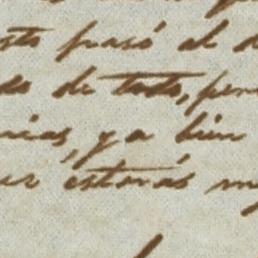 esto pasó al d
do de todo, per
rias, ya bien
ar estarás m